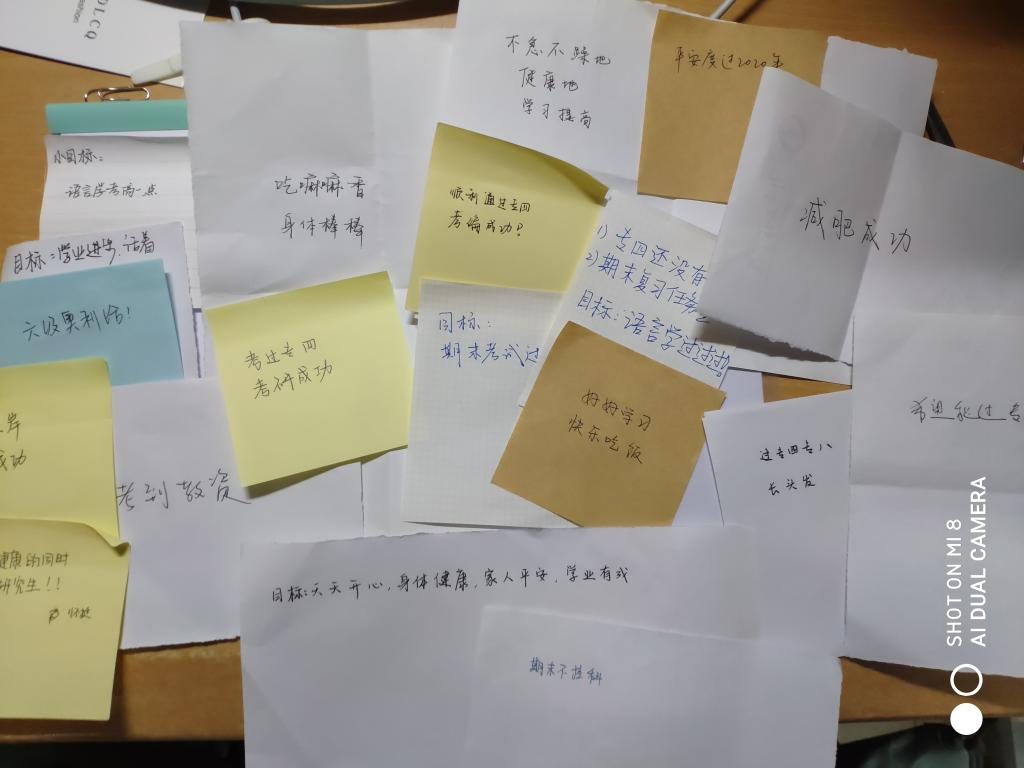 DLCQ
不急不躁地
健康地
学习提高
平安度过2020年
小目标：
语言学考高一点
吃嘛嘛香
身体棒棒
顺利通过专四
考编成功！
1) 专四还没有
2) 期末复习任务
目标：语言学过过过！
减肥成功
目标：学业进步，活着
六级奥利给！
考过专四
考研成功
目标：
期末考试过
好好学习
快乐吃饭
过专四专八
长头发
希望能过专
岸
成功
考到教资
健康的同时
研究生！！
目标：天天开心，身体健康，家人平安，学业有成
期末不挂科
SHOT ON MI 8
AI DUAL CAMERA